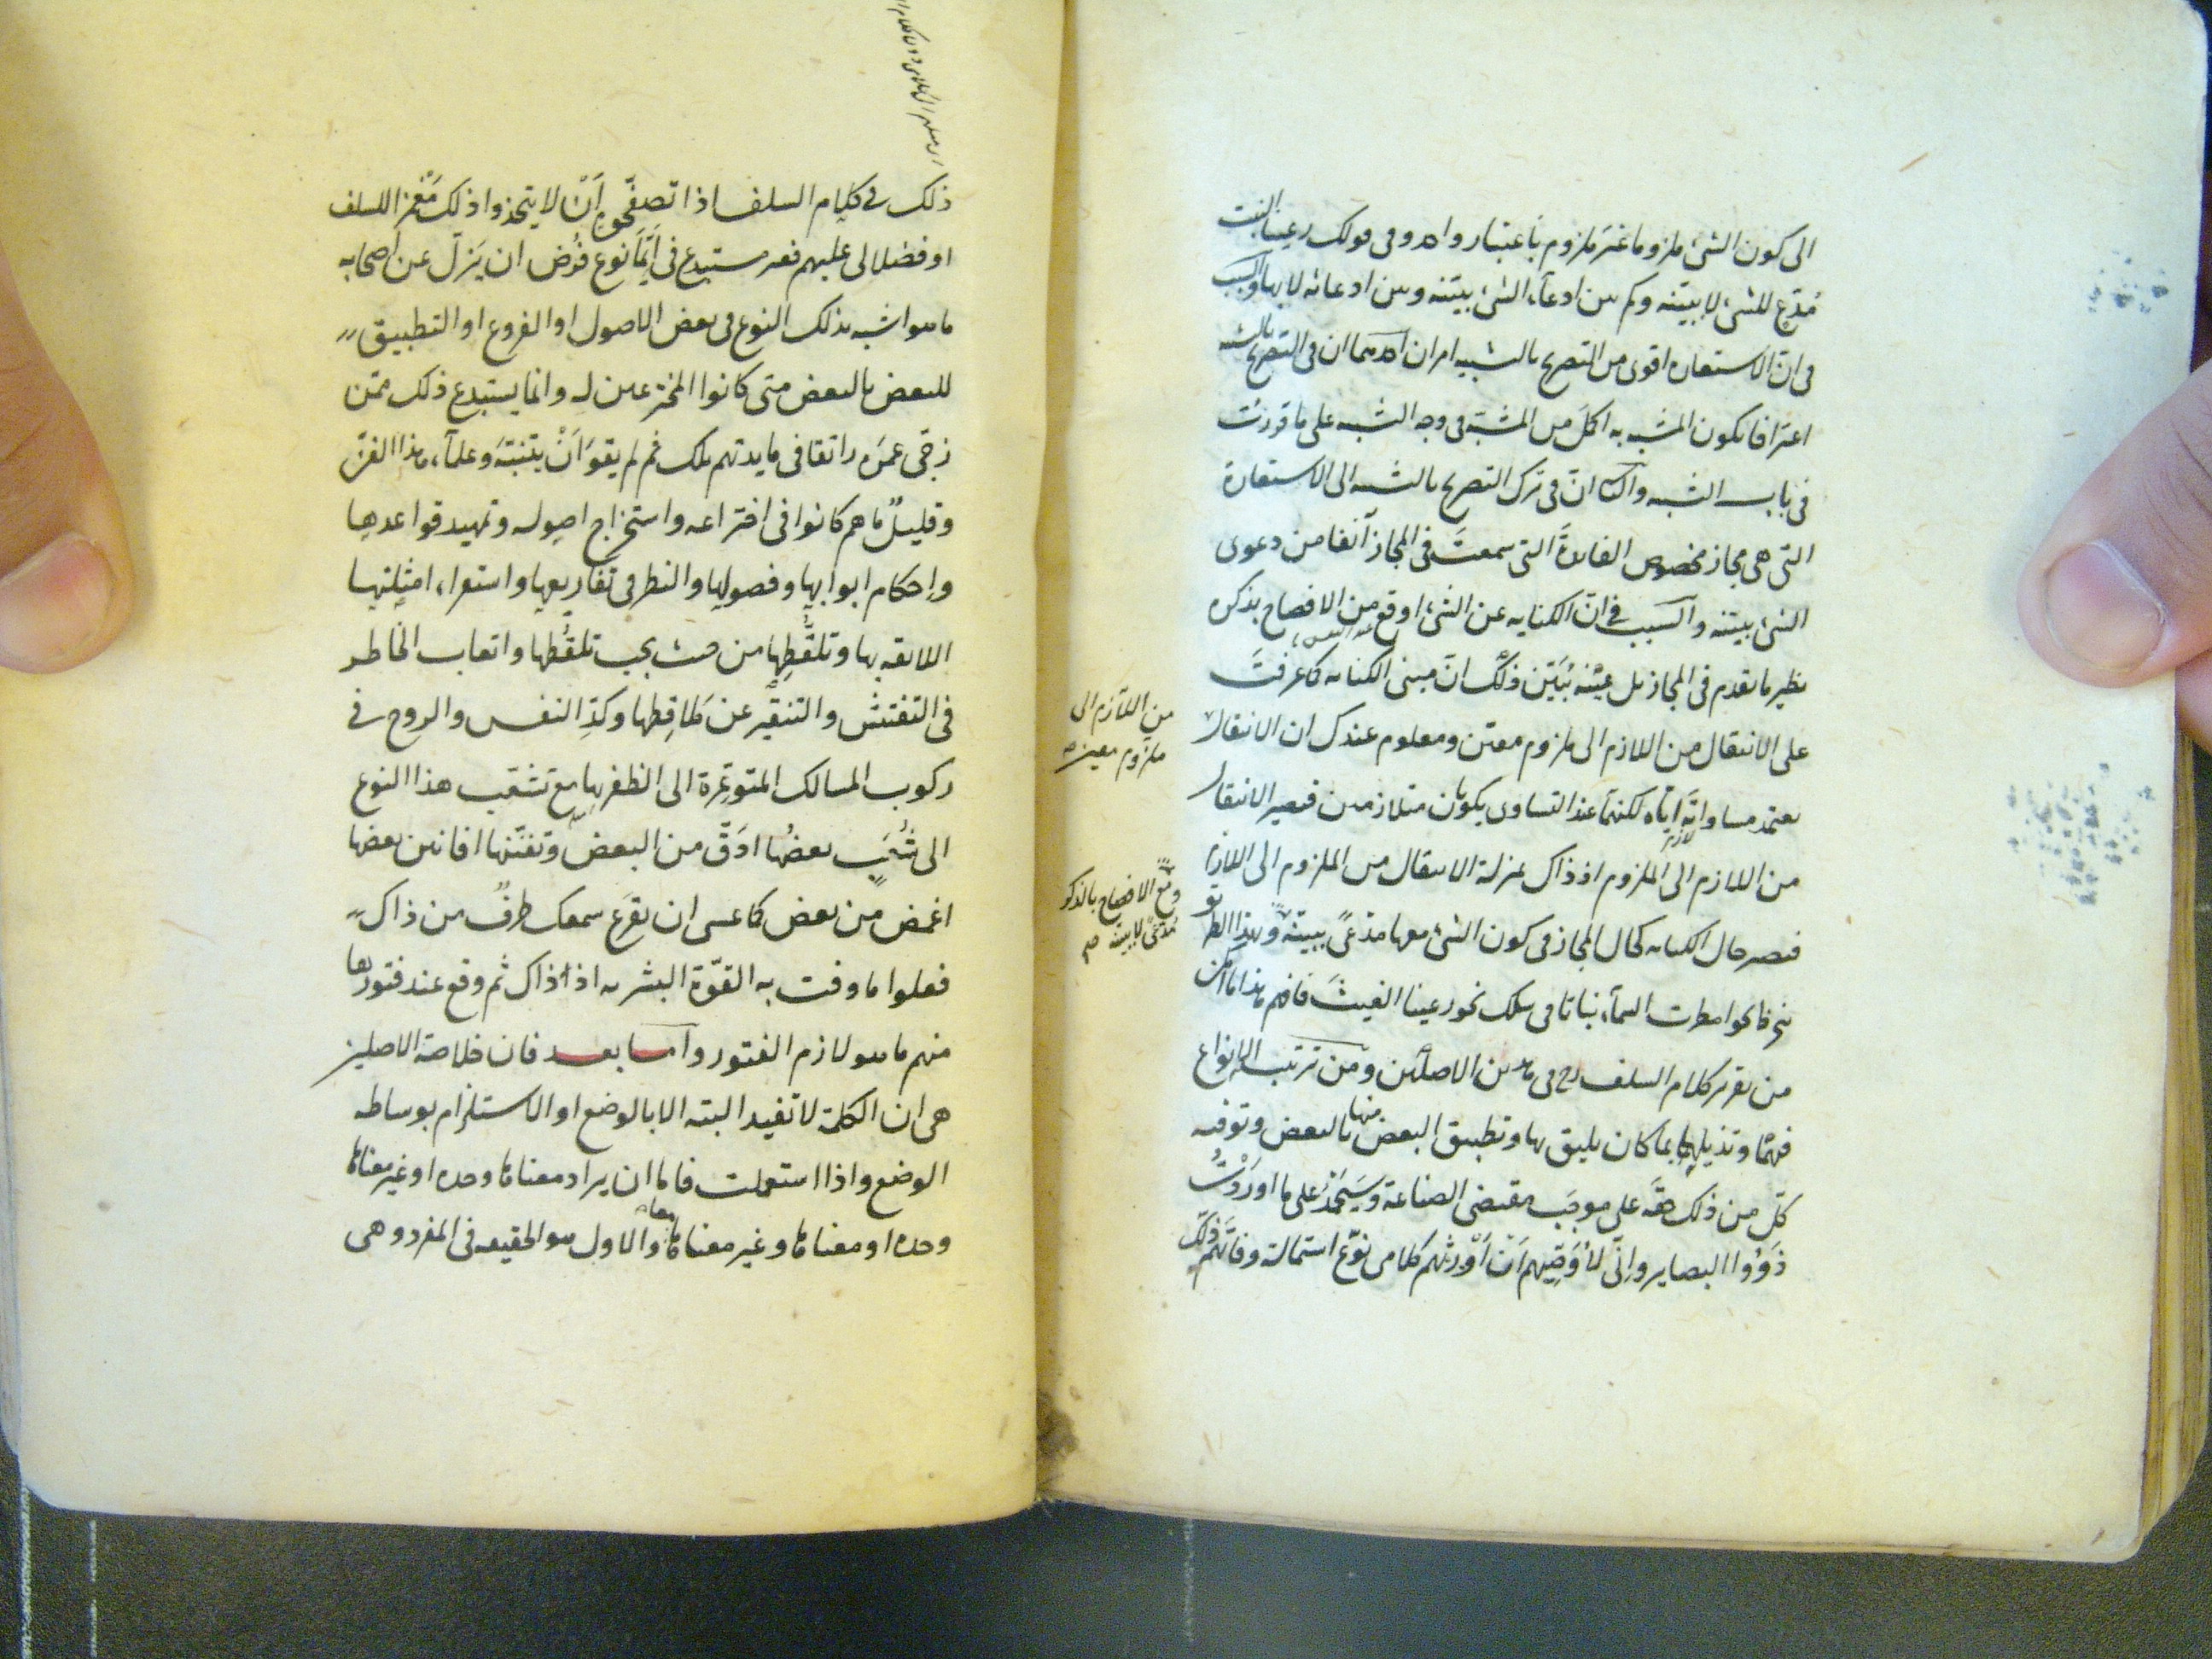 الى كون الشئ ملزوما غير ملزوم باعتبار واحد وفى قولك رعينا النبت
مدّع للشئ لا ببيّنه وكم بين ادعآء الشئ ببيّنه وبين ادعائه لا بها والسبب
فى انّ الاستعاره اقوى من التصريح بالتشبيه امران احدهما ان فى التصريح بالتشبيه
اعترافا بكون المشبه به اكمل من المشبّه فى وجه الشبه على ما قررت
فى باب التشبيه والثانى انّ فى ترك التصريح بالتشبيه الى الاستعارة
التى هى مجاز مخصوص الفائدة التى سمعتَ فى المجاز آنفا من دعوى
الشئ ببيّنه والسبب فى انّ الكنايه عن الشئ اوقع من الافصاح بذكره
نظير ما تقدم فى المجاز بل عينه يُبيّن ذلك انّ مبنى الكنايه كما عرفتَ
على الانتقال من اللازم الى ملزوم معين ومعلوم عندك ان الانتقال
من اللازم الى
ملزوم معين صح
يعتمد مساواته اياه لكنهما عند التساوى يكونان متلازمين فيصير الانتقال
من اللازم الى الملزوم اذ ذاك بمنزلة الانتقال من الملزوم الى اللازم
فيصير حال الكنايه كحال المجاز فى كون الشئ معها مدعىً ببيّنة وبهذا الطريق
ومع الافصاح بالذكر
مدعىً لا ببينه صح
ينخرط نحو امطرت السمآء نباتا فى سلك نحو رعينا الغيثَ فافهم هذا ما امكن
من تقرير كلام السلف رح فى هذين الاصلين ومن ترتيب الانواع
فيهما وتذييلها بما كان يليق بها وتطبيق البعض منها بالبعض وتوفيه
كلّ من ذلك حقّه على موجَب مقتضى الصناعة وسيَحمَدُ على ما اوردتُ
ذَوُوا البصاير وانّى لأوصّيهم اَن اَوْرَثهم كلامى نوعَ استمالة وفاتهم ذلك
ذلك فى كلام السلف اذا تصفّحوه اَنْ لا يتخذوا ذلك مَغْمَزا للسلف
او فضلا لى عليهم فغير مستبدع فى ايّما نوع فُرض ان يَزلّ عن اصحابه
ما هو اشبه بذلك النوع فى بعض الاصول او الفروع او التطبيق
للبعض بالبعض متى كانوا المخترعين له وانما يستبدع ذلك ممّن
زجّى عمره راتعا فى مايدتهم تلك ثم لم يقوَ اَنْ يتنبّهَ وعلمآء هذا الفنّ
وقليلٌ ما هم كانوا فى اختراعه واستخراج اصوله وتمهيد قواعدها
وإحكام ابوابها وفصولها والنظر فى تفاريعها واستقرآء امثلتها
اللائقه بها وتلقّطِها من حيث يجب تلقّطها واتعاب الخاطر
فى التفتيش والتنقير عن مَلاقِطها وكدّ النفس والروح فى
ركوب المسالك المتوعّرة الى الظفر بها مع تشعّب هذا النوع
الى شُعَبٍ بعضُها ادقّ من البعض وتفنّنها افانين بعضها
اغمض من بعض كما عسى ان يقرَع سمعك طرفٌ من ذاك
فعلوا ما وفت به القوّة البشريه اذ ذاك ثم وقع عند فتورها
منهم ما هو لازم الفتور واما بعد فان خلاصة الاصلين
هى ان الكلمة لا تفيد البته الا بالوضع او الاستلزام بوساطه
الوضع واذا استعملت فاما ان يراد معناها وحده او غير معناها
وحده او معناها وغير معناها معا والاول هو الحقيقه فى المفرد وهى